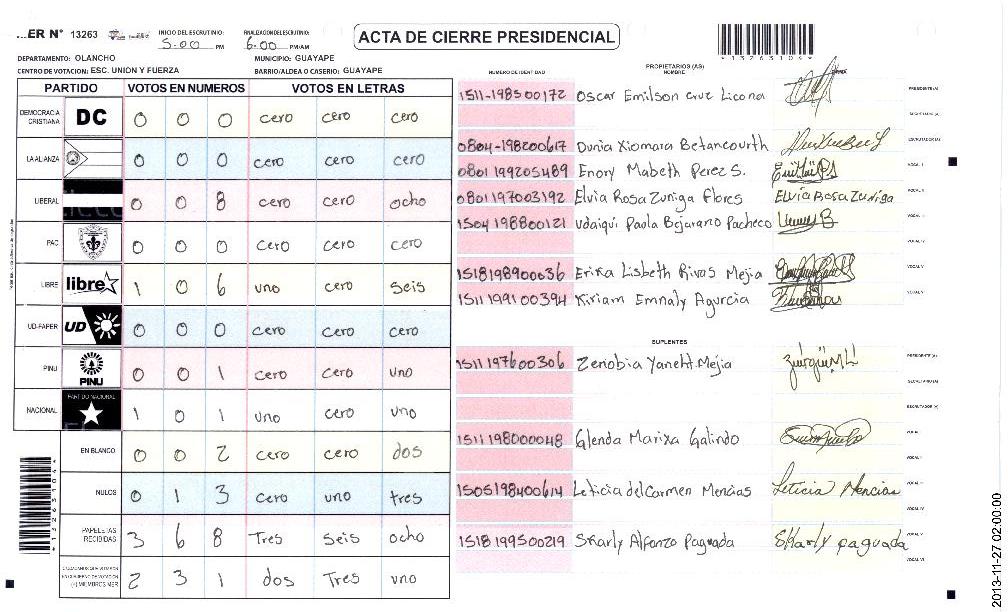 ...ER N° 13263 INICIO DEL ESCRUTINIO: 5:00 PM FINALIZACION DEL ESCRUTINIO: 6:00 PM/AM
ACTA DE CIERRE PRESIDENCIAL
*13263109*
DEPARTAMENTO: OLANCHO MUNICIPIO: GUAYAPE
CENTRO DE VOTACION: ESC. UNION Y FUERZA BARRIO/ALDEA O CASERIO: GUAYAPE
PARTIDO VOTOS EN NUMEROS VOTOS EN LETRAS
DEMOCRACIA CRISTIANA DC 0 0 0 cero cero cero
LA ALIANZA 0 0 0 cero cero cero
LIBERAL 0 0 8 cero cero ocho
PAC 0 0 0 cero cero cero
LIBRE libre 1 0 6 uno cero seis
UD-FAPER UD 0 0 0 cero cero cero
PINU PINU 0 0 1 cero cero uno
NACIONAL PARTIDO NACIONAL 1 0 1 uno cero uno
EN BLANCO 0 0 2 cero cero dos
NULOS 0 1 3 cero uno tres
PAPELETAS RECIBIDAS 3 6 8 Tres seis ocho
(+) MIEMBROS MER 2 3 1 dos Tres uno
NUMERO DE IDENTIDAD PROPIETARIOS (AS) NOMBRE FIRMA
1511-198500172 Oscar Emilson Cruz Licona PRESIDENTE (A)
SECRETARIO (A)
0804-198200617 Dunia Xiomara Betancourth ESCRUTADOR (A)
0801 199205489 Enory Mabeth Perez S. VOCAL I
0801197003192 Elvia Rosa Zuniga Flores Elvia Rosa Zuniga VOCAL II
1504 198800121 Udaiqui Paola Bejarano Pacheco
VOCAL IV
1518198900036 Erika Lisbeth Rivas Mejia VOCAL V
1511 199100394 Kiriam Emnaly Agurcia
SUPLENTES
1511 197600306 Zenobia Yaneht Mejia PRESIDENTE (A)
SECRETARIO (A)
ESCRUTADOR (A)
1511 198000048 Glenda Marixa Galindo VOCAL I
VOCAL II
1505198400614 Leticia del Carmen Mencias Leticia Mencias
VOCAL IV
1518 199500219 Skarly Alfonzo Paguada Skarly paguada VOCAL V
VOCAL VI
2013-11-27 02:00:00